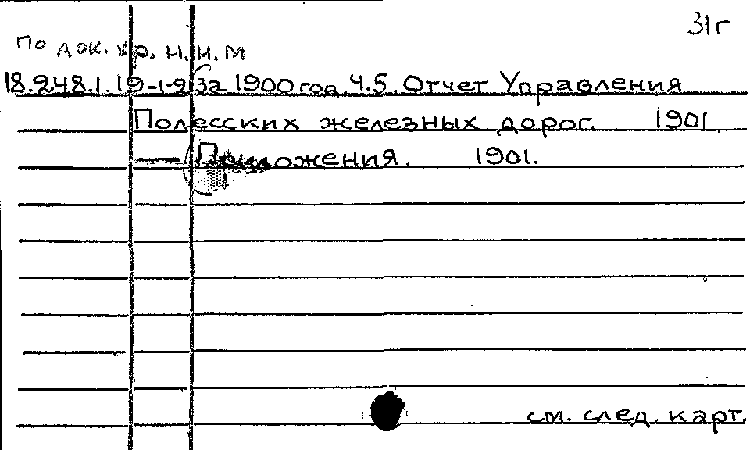 31г
По док. хр. Н.И.М
18.248.1.19-1-2 За 1900 год. Ч.5. Отчет Управления
Полесских железных дорог. 1901
— Приложения. 1901.
см. след. карт.